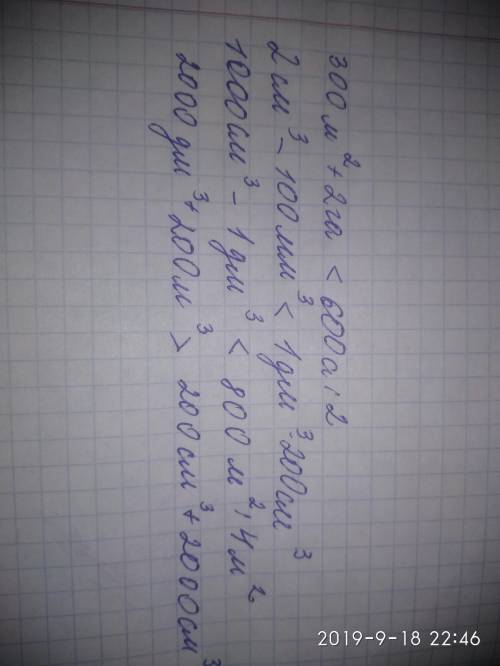 300 м² + 2га < 600а : 2
2 см³ - 100мм³ < 1дм³ 200см³
1000см³ - 1дм³ < 800м² : 4м²
2000дм³ + 200м³ > 200см³ + 2000см³
2019-9-18 22:46